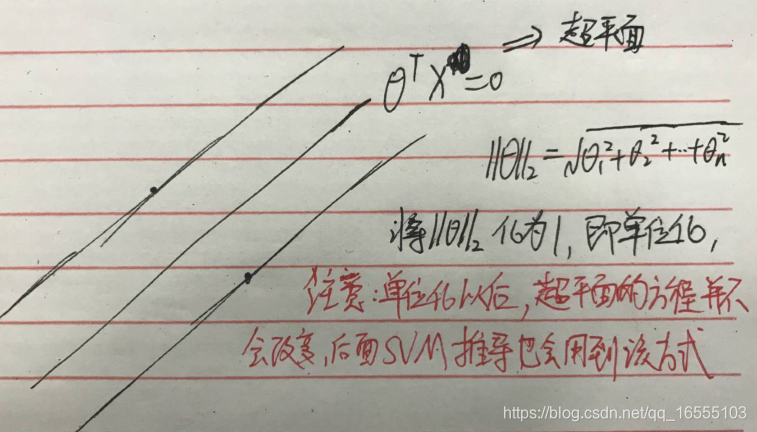 ⇒ 超平面
θᵀX=0
||θ||₂ = √θ₁²+θ₂²+…+θₙ²
将||θ||₂ 化为1, 即单位化,
注意:单位化以后,超平面的方程并不
会改变,后面SVM推导也会用到该方式
https://blog.csdn.net/qq_16555103